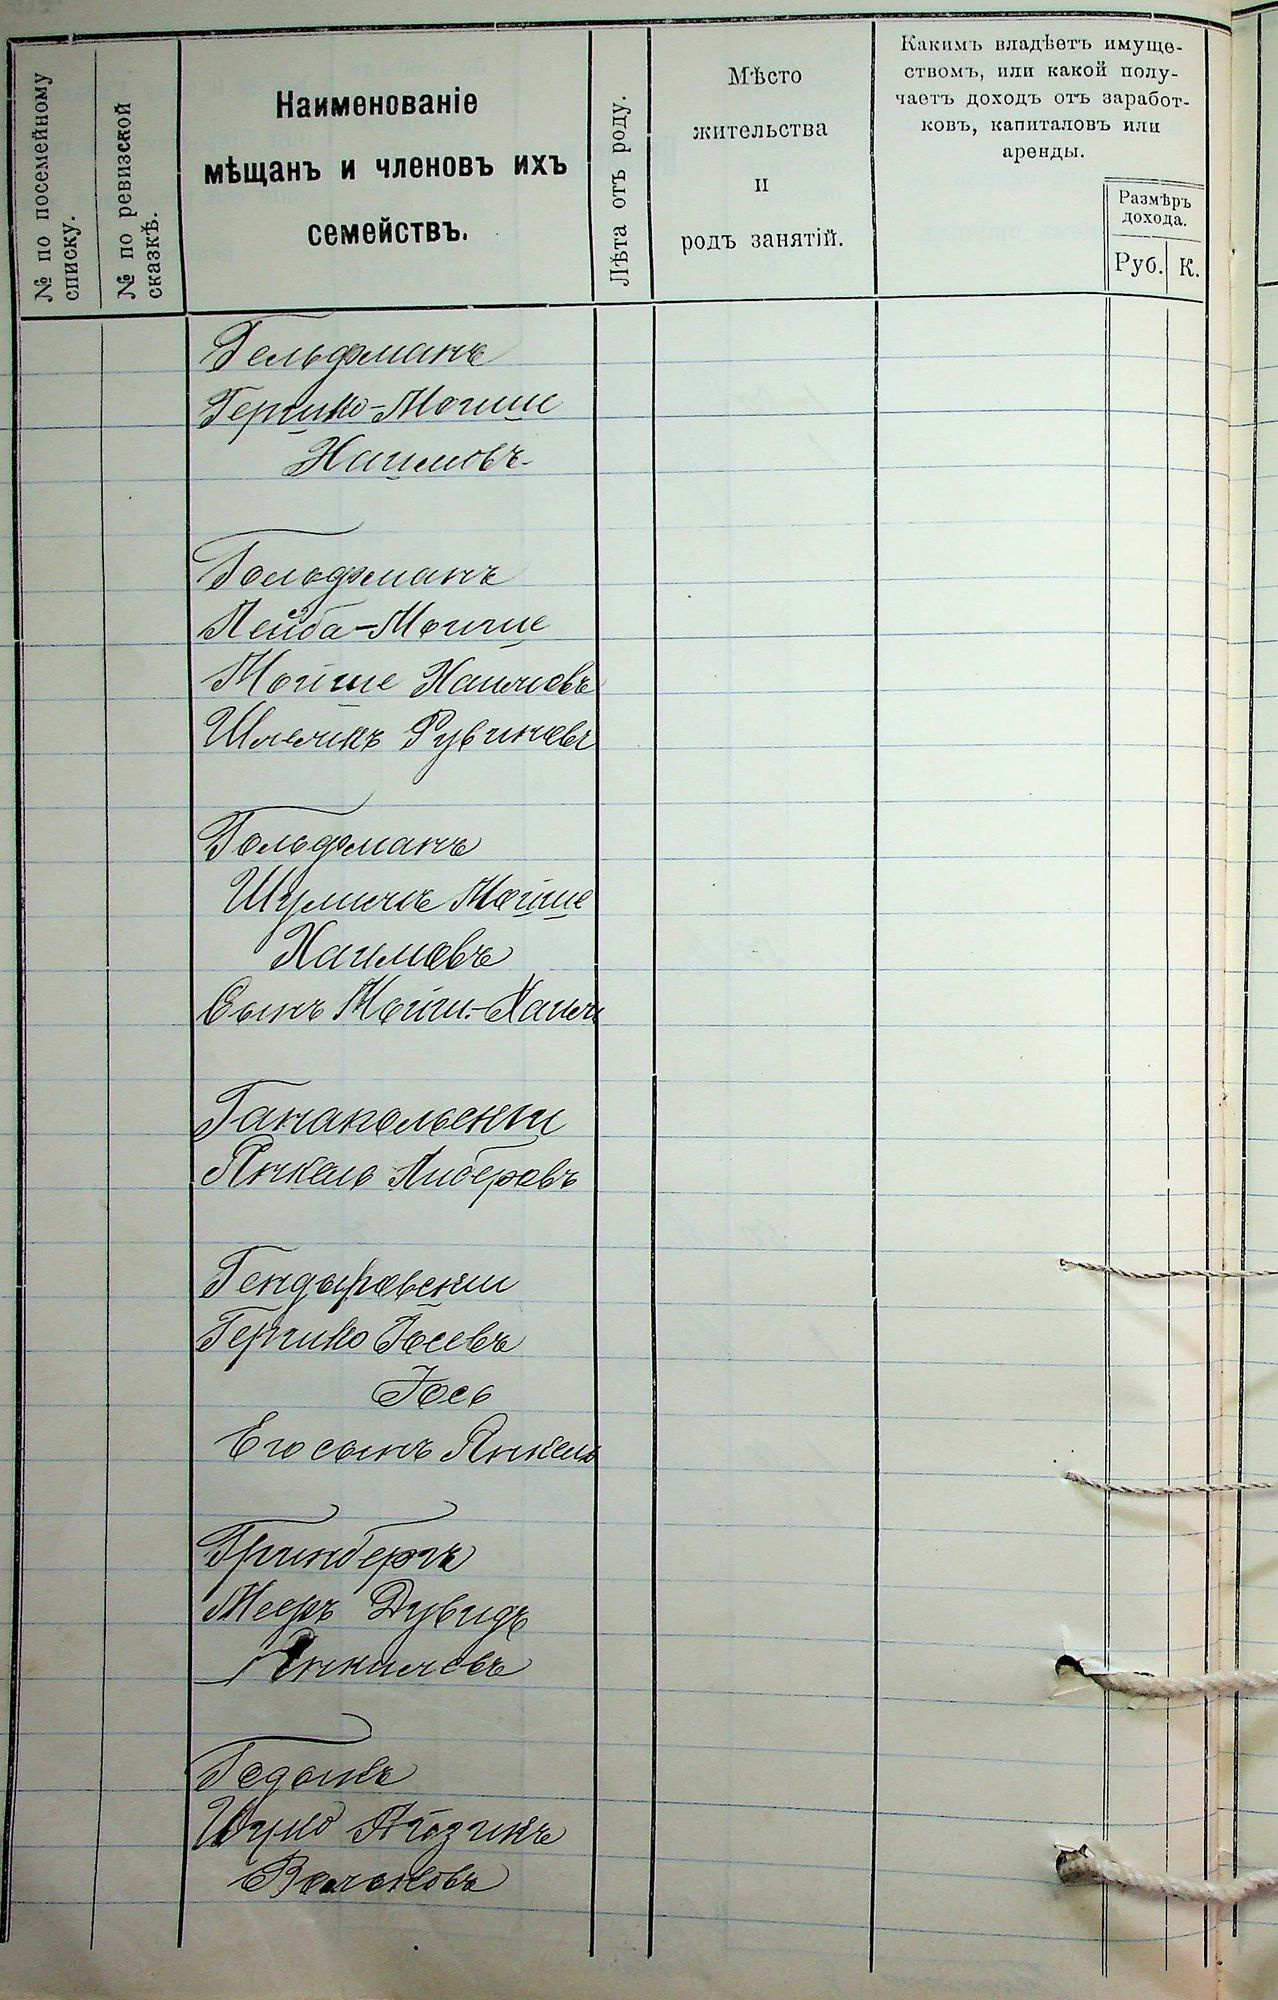 № по посемейному
списку.
№ по ревизской
сказкѣ.
Наименованіе
мѣщанъ и членовъ ихъ
семействъ.
Лѣта отъ роду.
Мѣсто
жительства
и
родъ занятій.
Какимъ владѣетъ имуще-
ствомъ, или какой полу-
чаетъ доходъ отъ заработ-
ковъ, капиталовъ или
аренды.
Размѣръ
дохода.
Руб.
К.
Гельфманъ
Гершко-Могше
Хаимовъ
Гольфманъ
Лейба-Могше
Мойше Хаимовъ
Шлемикъ Рувиновъ
Гольфманъ
Шулимъ Мойше
Хаимовъ
Сынъ Мойш.-Хаим
Ганапольскіи
Янкель Либеровъ
Гендыревскіи
Гершко Іосевъ
Іось
Его сынъ Янкель
Гринбергъ
Мееръ Дувидъ
Янкилевъ
Годыкъ
Айзикъ